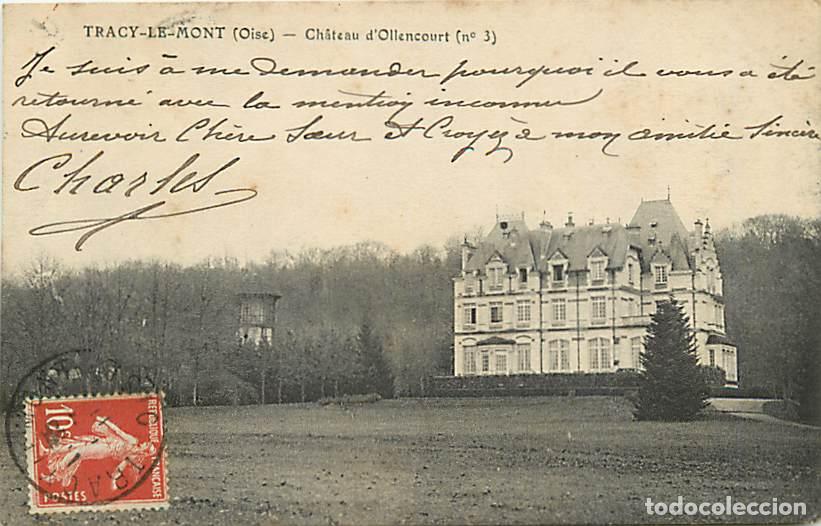 TRACY-LE-MONT (Oise) — Château d'Ollencourt (nº 3)
Je suis à me demander pourquoi il vous a été
retourné avec la mention inconnu
Aurevoir Chère Sœur et Croyez à mon amitié Sincère
Charles
10c
REPUBLIQUE FRANÇAISE
POSTES
TRACY
todocoleccion